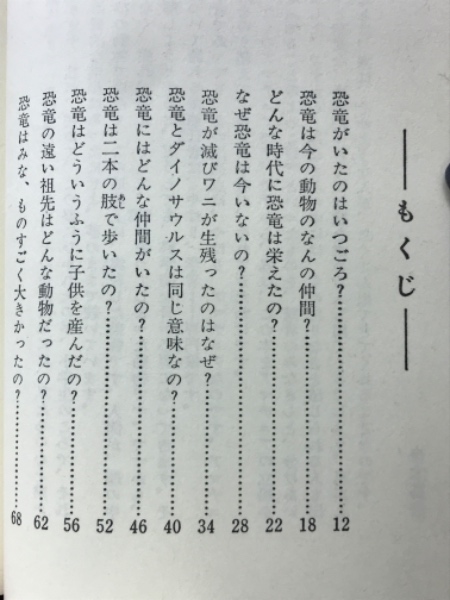 もくじ
恐竜がいたのはいつごろ？……………………12
恐竜は今の動物のなんの仲間？……………………18
どんな時代に恐竜は栄えたの？……………………22
なぜ恐竜は今いないの？……………………28
恐竜が滅びワニが生残ったのはなぜ？……………………34
恐竜とダイノサウルスは同じ意味なの？……………………40
恐竜にはどんな仲間がいたの？……………………46
恐竜は二本の肢で歩いたの？……………………52
恐竜はどういうふうに子供を産んだの？……………………56
恐竜の遠い祖先はどんな動物だったの？……………………62
恐竜はみな、ものすごく大きかったの？……………………68